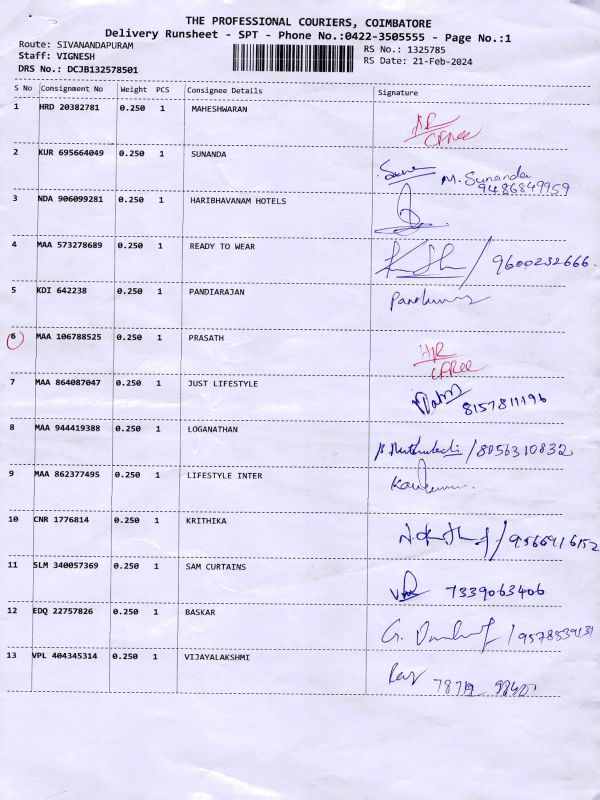 THE PROFESSIONAL COURIERS, COIMBATORE
Delivery Runsheet - SPT - Phone No.:0422-3505555 - Page No.:1
Route: SIVANANDAPURAM
RS No.: 1325785
Staff: VIGNESH
RS Date: 21-Feb-2024
DRS No.: DCJB132578501
S No Consignment No Weight PCS Consignee Details Signature
1 HRD 20382781 0.250 1 MAHESHWARAN
2 KUR 695664049 0.250 1 SUNANDA M. Sunanda
9486849959
3 NDA 906099281 0.250 1 HARIBHAVANAM HOTELS
4 MAA 573278689 0.250 1 READY TO WEAR / 9600232666.
5 KDI 642238 0.250 1 PANDIARAJAN
6 MAA 106788525 0.250 1 PRASATH
7 MAA 864087047 0.250 1 JUST LIFESTYLE 8157811196
8 MAA 944419388 0.250 1 LOGANATHAN / 8056310832
9 MAA 862377495 0.250 1 LIFESTYLE INTER
10 CNR 1776814 0.250 1 KRITHIKA / 9566916152
11 SLM 340057369 0.250 1 SAM CURTAINS 7339063406
12 EDQ 22757826 0.250 1 BASKAR
13 VPL 404345314 0.250 1 VIJAYALAKSHMI